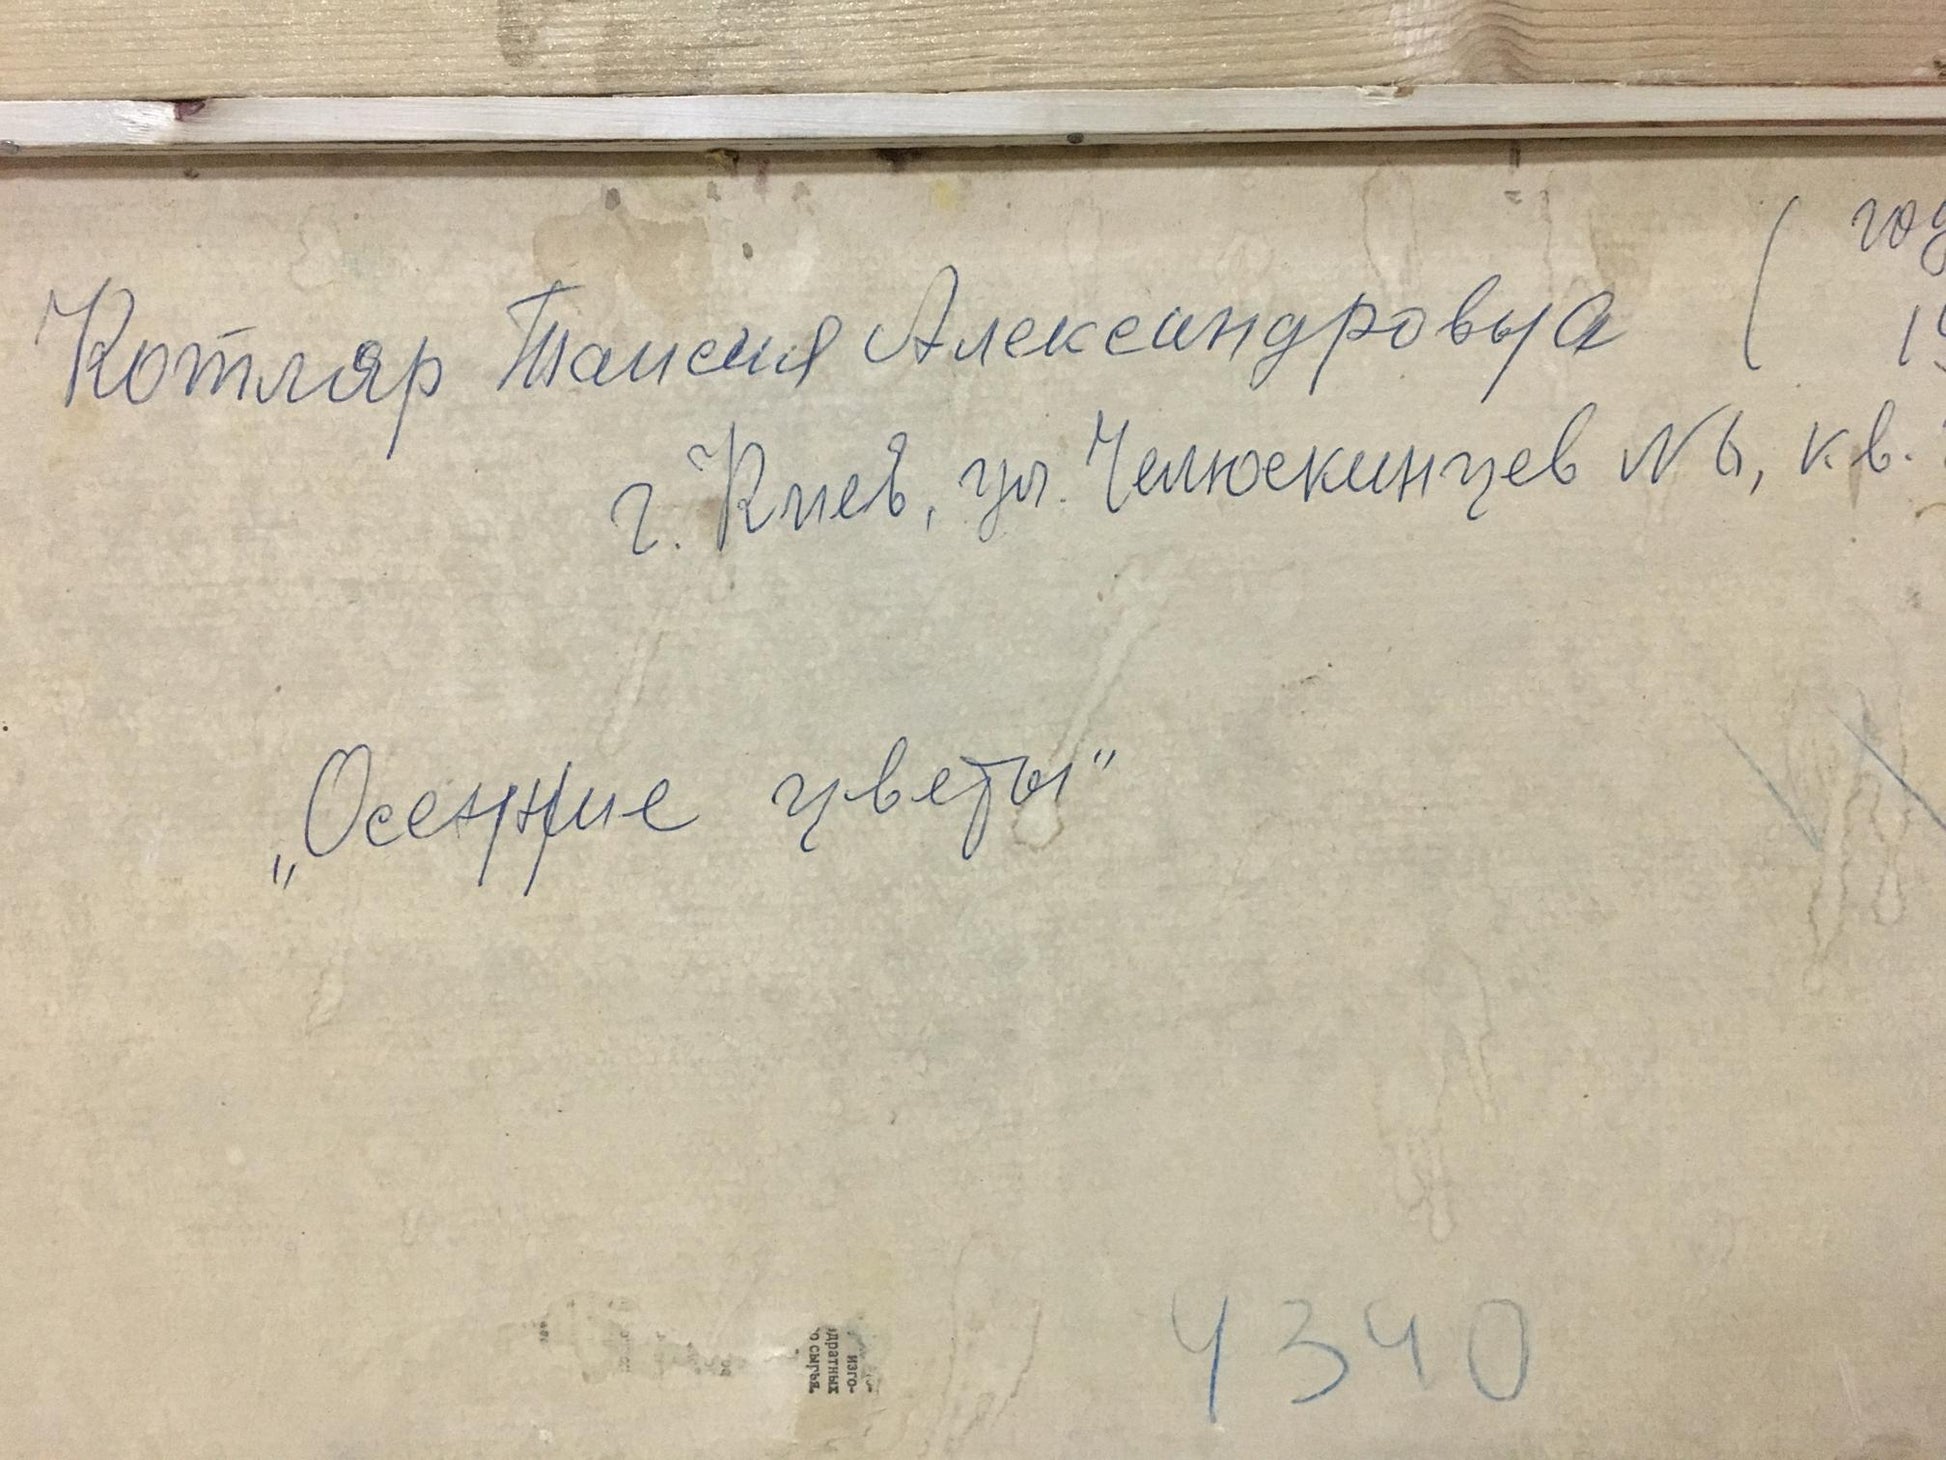 ( год
Котляр Таисия Александровна 19
г. Киев, ул. Челюскинцев №6, кв.
„Осенние цветы"
4340
изго-
дратных
о сырья.